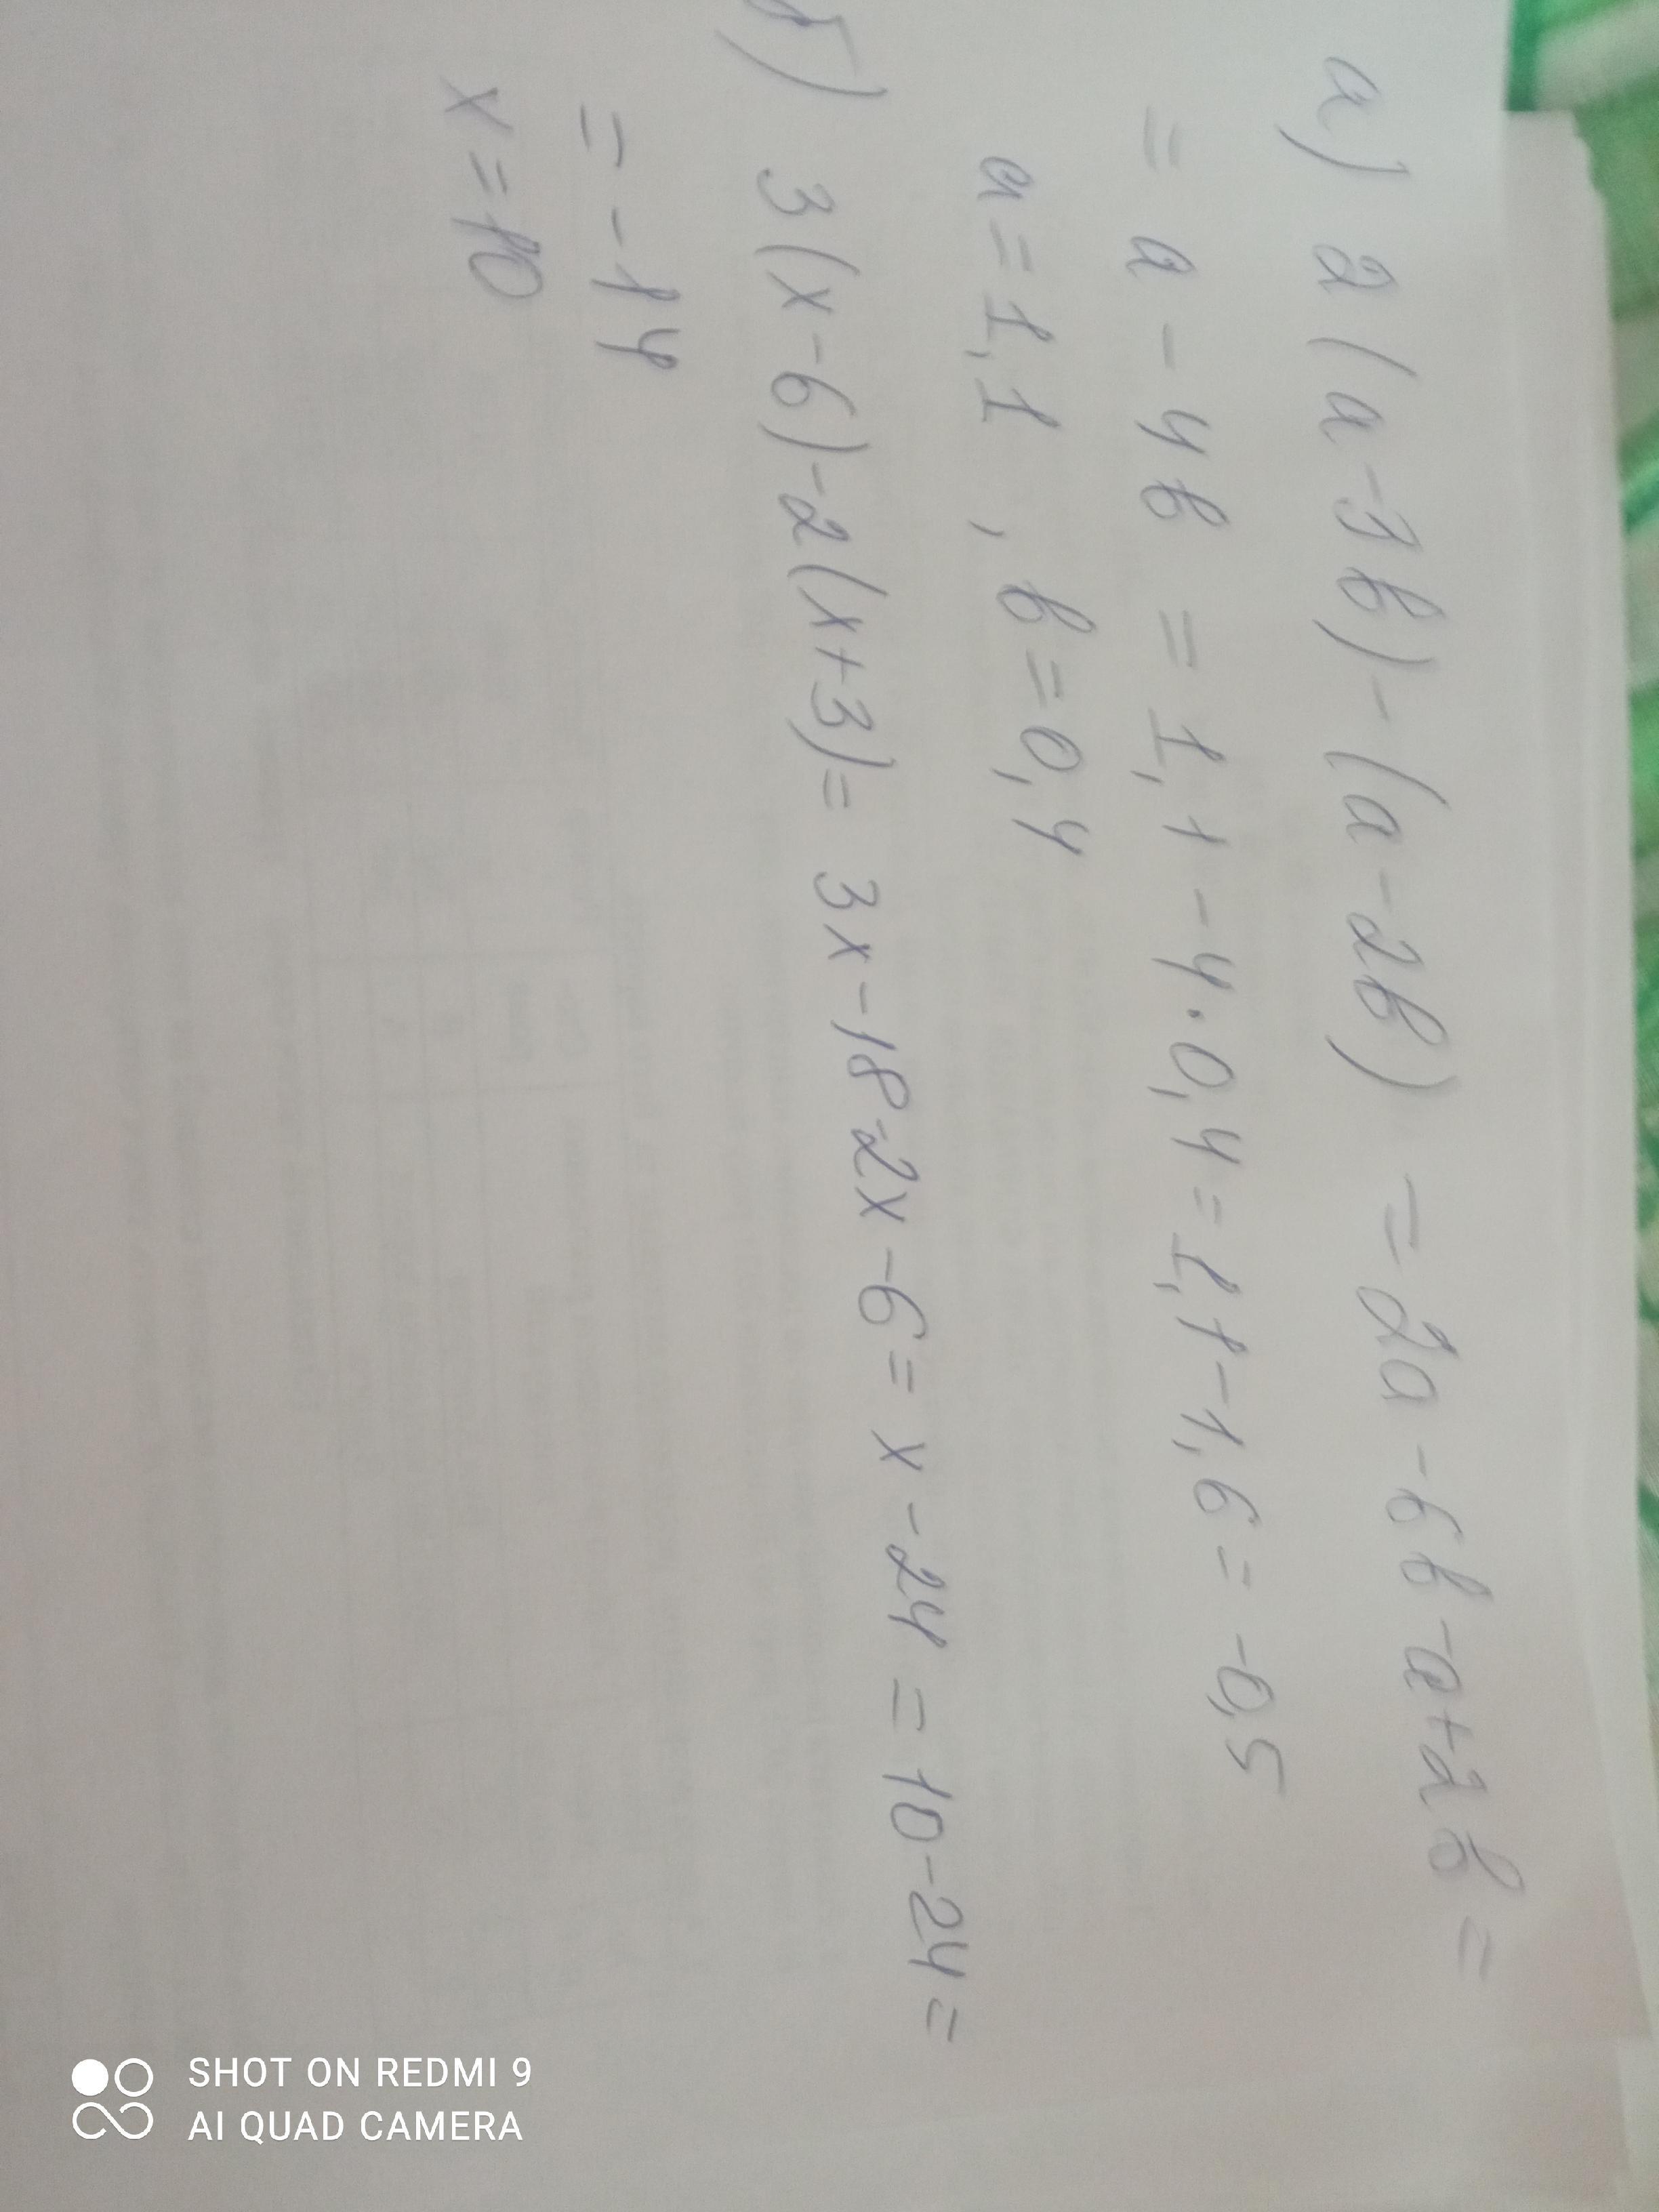 а) 2(а-3в)-(а-2в) = 2а-6в-а+2в=
= а-4в = 1,1-4·0,4=1,1-1,6=-0,5
а=1,1, в=0,4
б) 3(x-6)-2(x+3)= 3x-18-2x-6= x-24 = 10-24=
= -14
x=10
SHOT ON REDMI 9
AI QUAD CAMERA